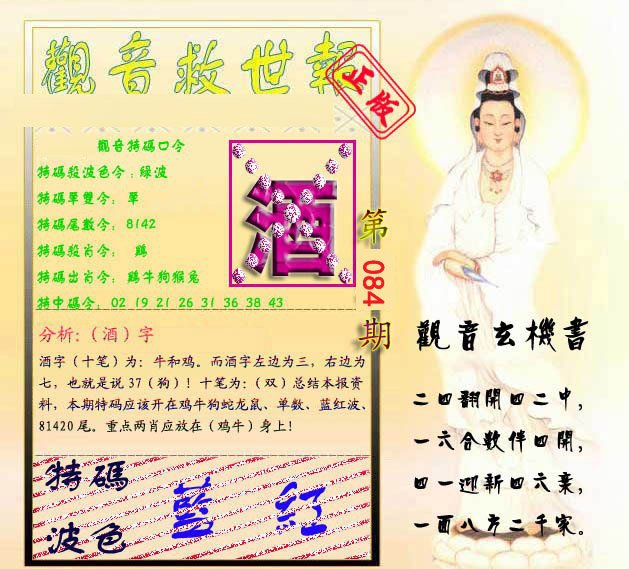 觀音救世報
正版
觀音特碼口令
特碼殺波色令：綠波
特碼單雙令： 單
特碼尾數令： 8142
特碼殺肖令： 鷄
特碼出肖令： 鷄牛狗猴兔
特中碼令： 02 19 21 26 31 36 38 43
酒
第
084
期
分析:（酒）字
酒字（十笔）为：牛和鸡。而酒字左边为三，右边为
七，也就是说37（狗）！十笔为：（双）总结本报资
料，本期特码应该开在鸡牛狗蛇龙鼠、单数、蓝红波、
81420尾。重点两肖应放在（鸡牛）身上!
特碼
波色
藍 紅
觀音玄機書
二四翻開四二中，
一六合數伴四開，
四一迎新四六来，
一面八方二千家。